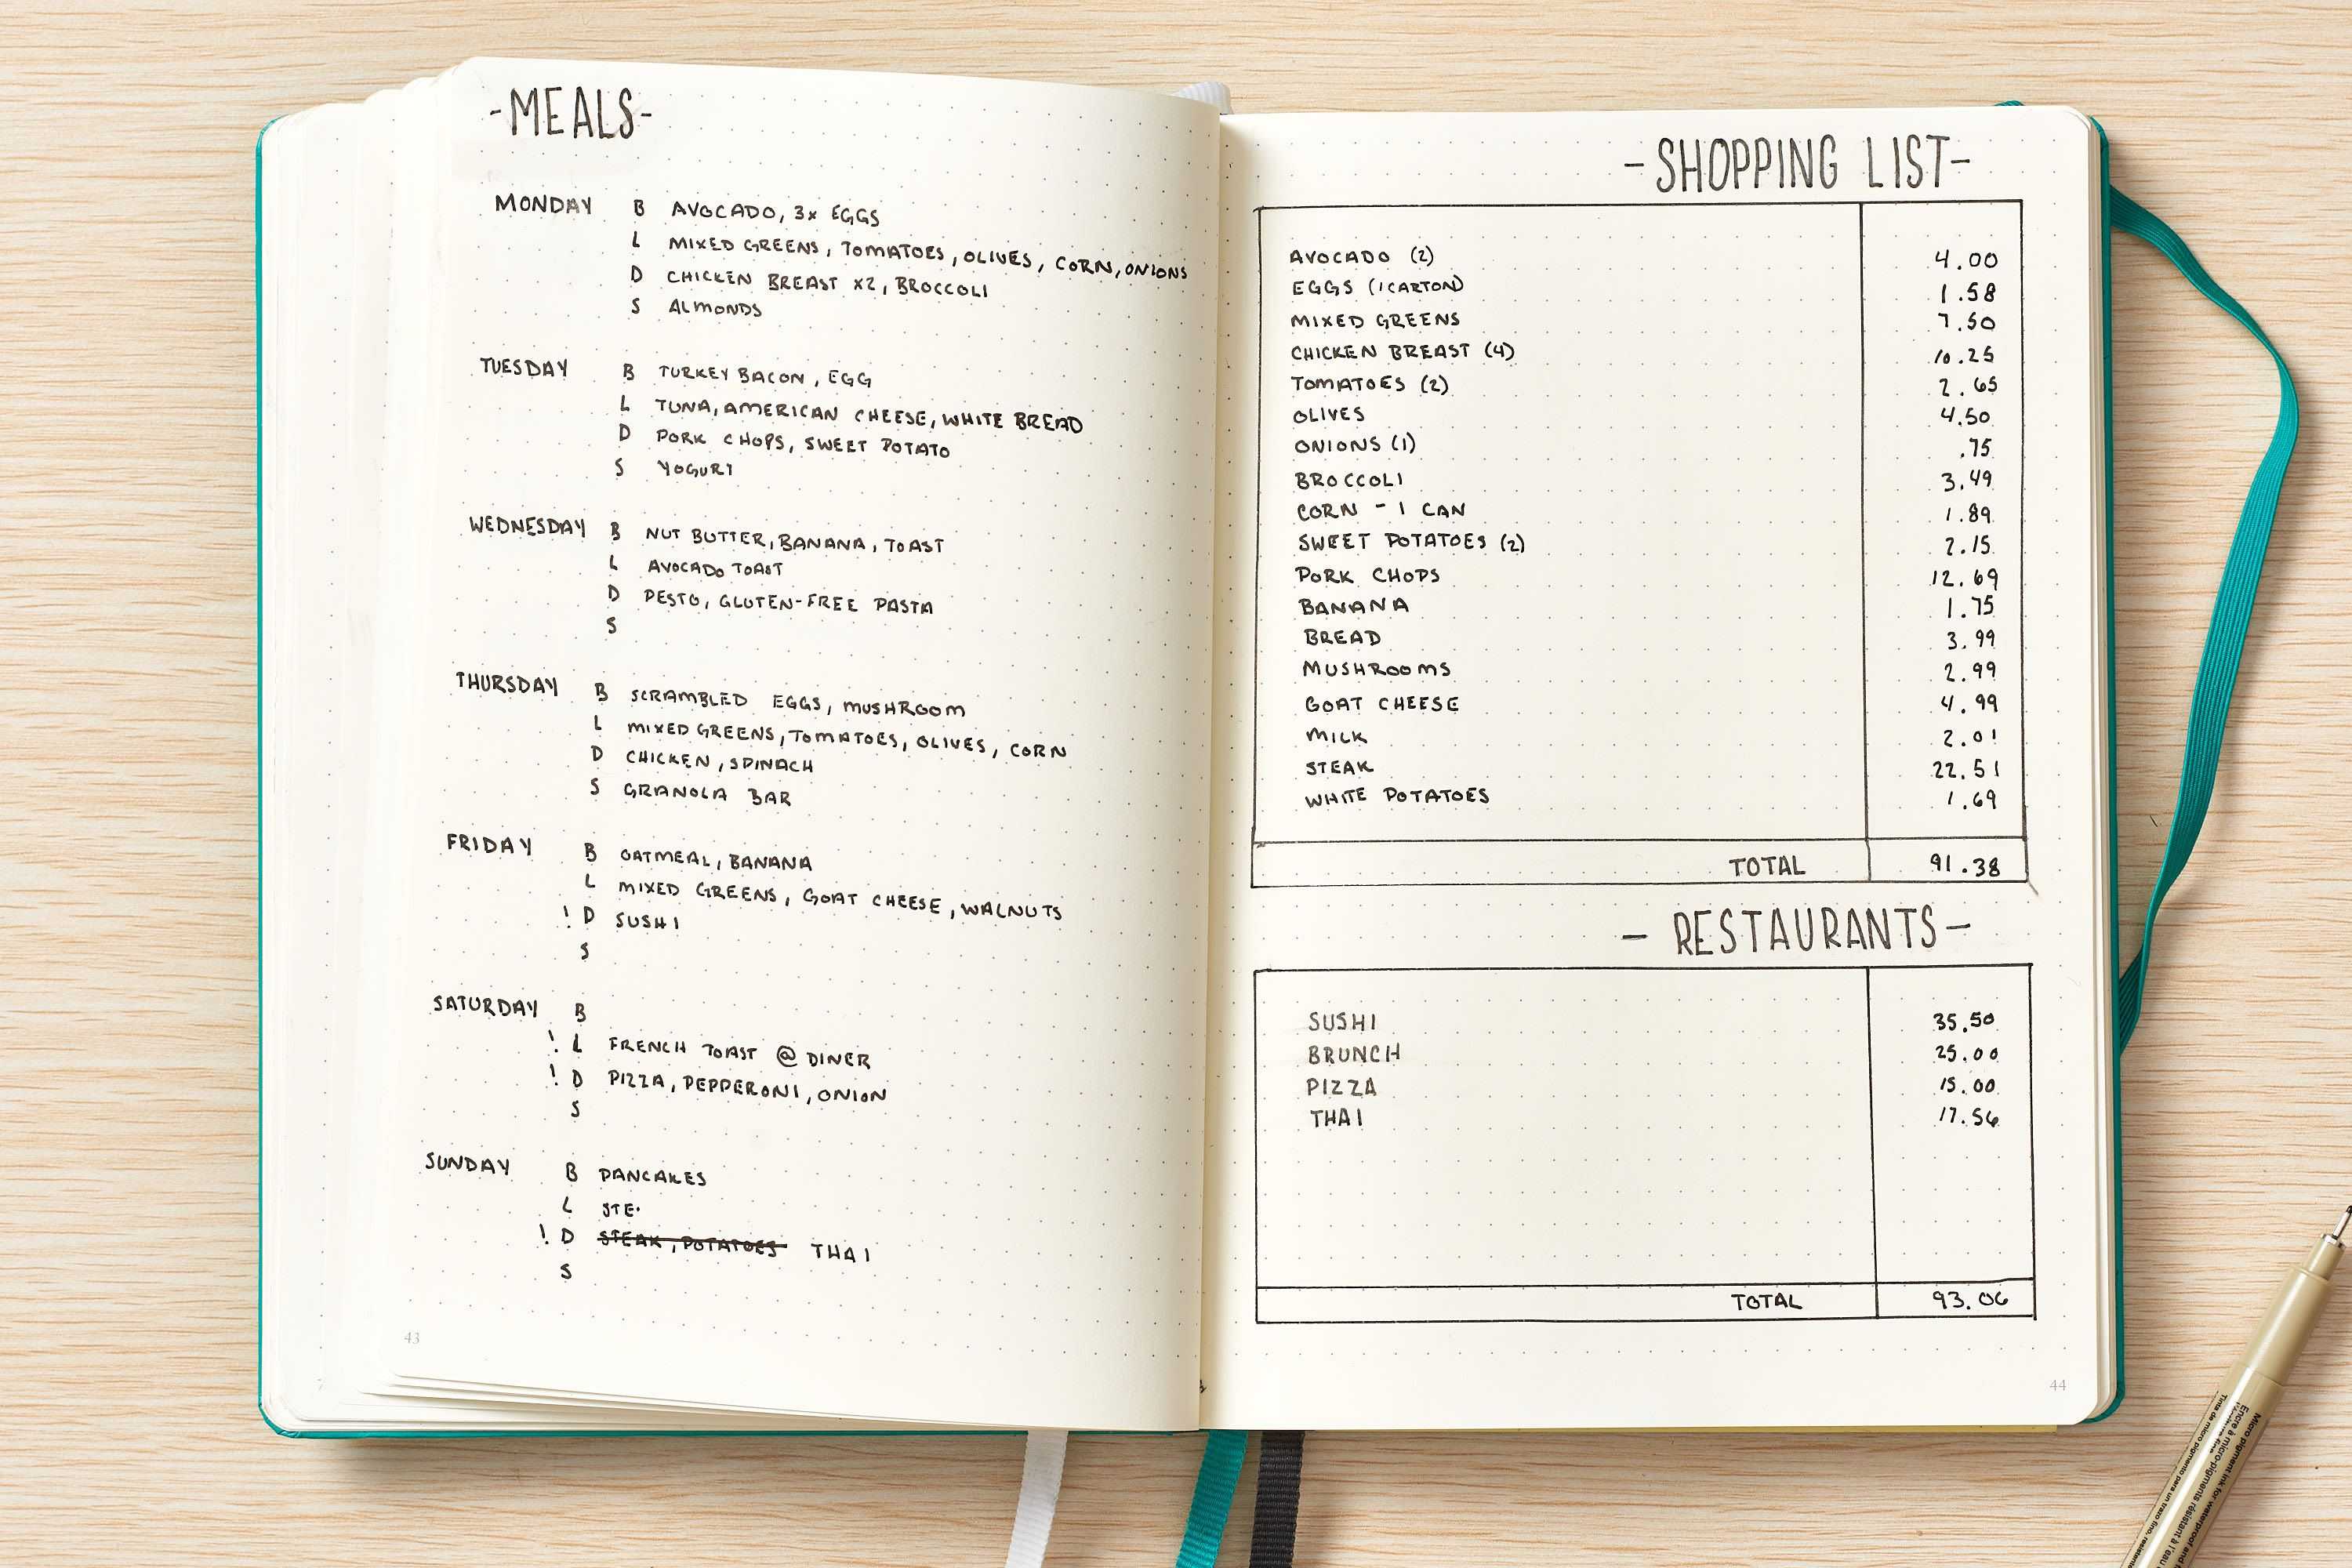 -MEALS-
MONDAY B AVOCADO, 3x EGGS
L MIXED GREENS, TOMATOES, OLIVES, CORN, ONIONS
D CHICKEN BREAST X2, BROCCOLI
S ALMONDS
TUESDAY B TURKEY BACON, EGG
L TUNA, AMERICAN CHEESE, WHITE BREAD
D PORK CHOPS, SWEET POTATO
S YOGURT
WEDNESDAY B NUT BUTTER, BANANA, TOAST
L AVOCADO TOAST
D PESTO, GLUTEN-FREE PASTA
S
THURSDAY B SCRAMBLED EGGS, MUSHROOM
L MIXED GREENS, TOMATOES, OLIVES, CORN
D CHICKEN, SPINACH
S GRANOLA BAR
FRIDAY B OATMEAL, BANANA
L MIXED GREENS, GOAT CHEESE, WALNUTS
! D SUSHI
S
SATURDAY B
! L FRENCH TOAST @ DINER
! D PIZZA, PEPPERONI, ONION
S
SUNDAY B PANCAKES
L STE.
! D STEAK, POTATOES THAI
S
43
-SHOPPING LIST-
AVOCADO (2) 4.00
EGGS (1 CARTON) 1.58
MIXED GREENS 7.50
CHICKEN BREAST (4) 10.25
TOMATOES (2) 2.65
OLIVES 4.50
ONIONS (1) .75
BROCCOLI 3.49
CORN - 1 CAN 1.89
SWEET POTATOES (2) 2.15
PORK CHOPS 12.69
BANANA 1.75
BREAD 3.99
MUSHROOMS 2.99
GOAT CHEESE 4.99
MILK 2.01
STEAK 22.51
WHITE POTATOES 1.69
TOTAL 91.38
- RESTAURANTS -
SUSHI 35.50
BRUNCH 25.00
PIZZA 15.00
THAI 17.56
TOTAL 93.06
44